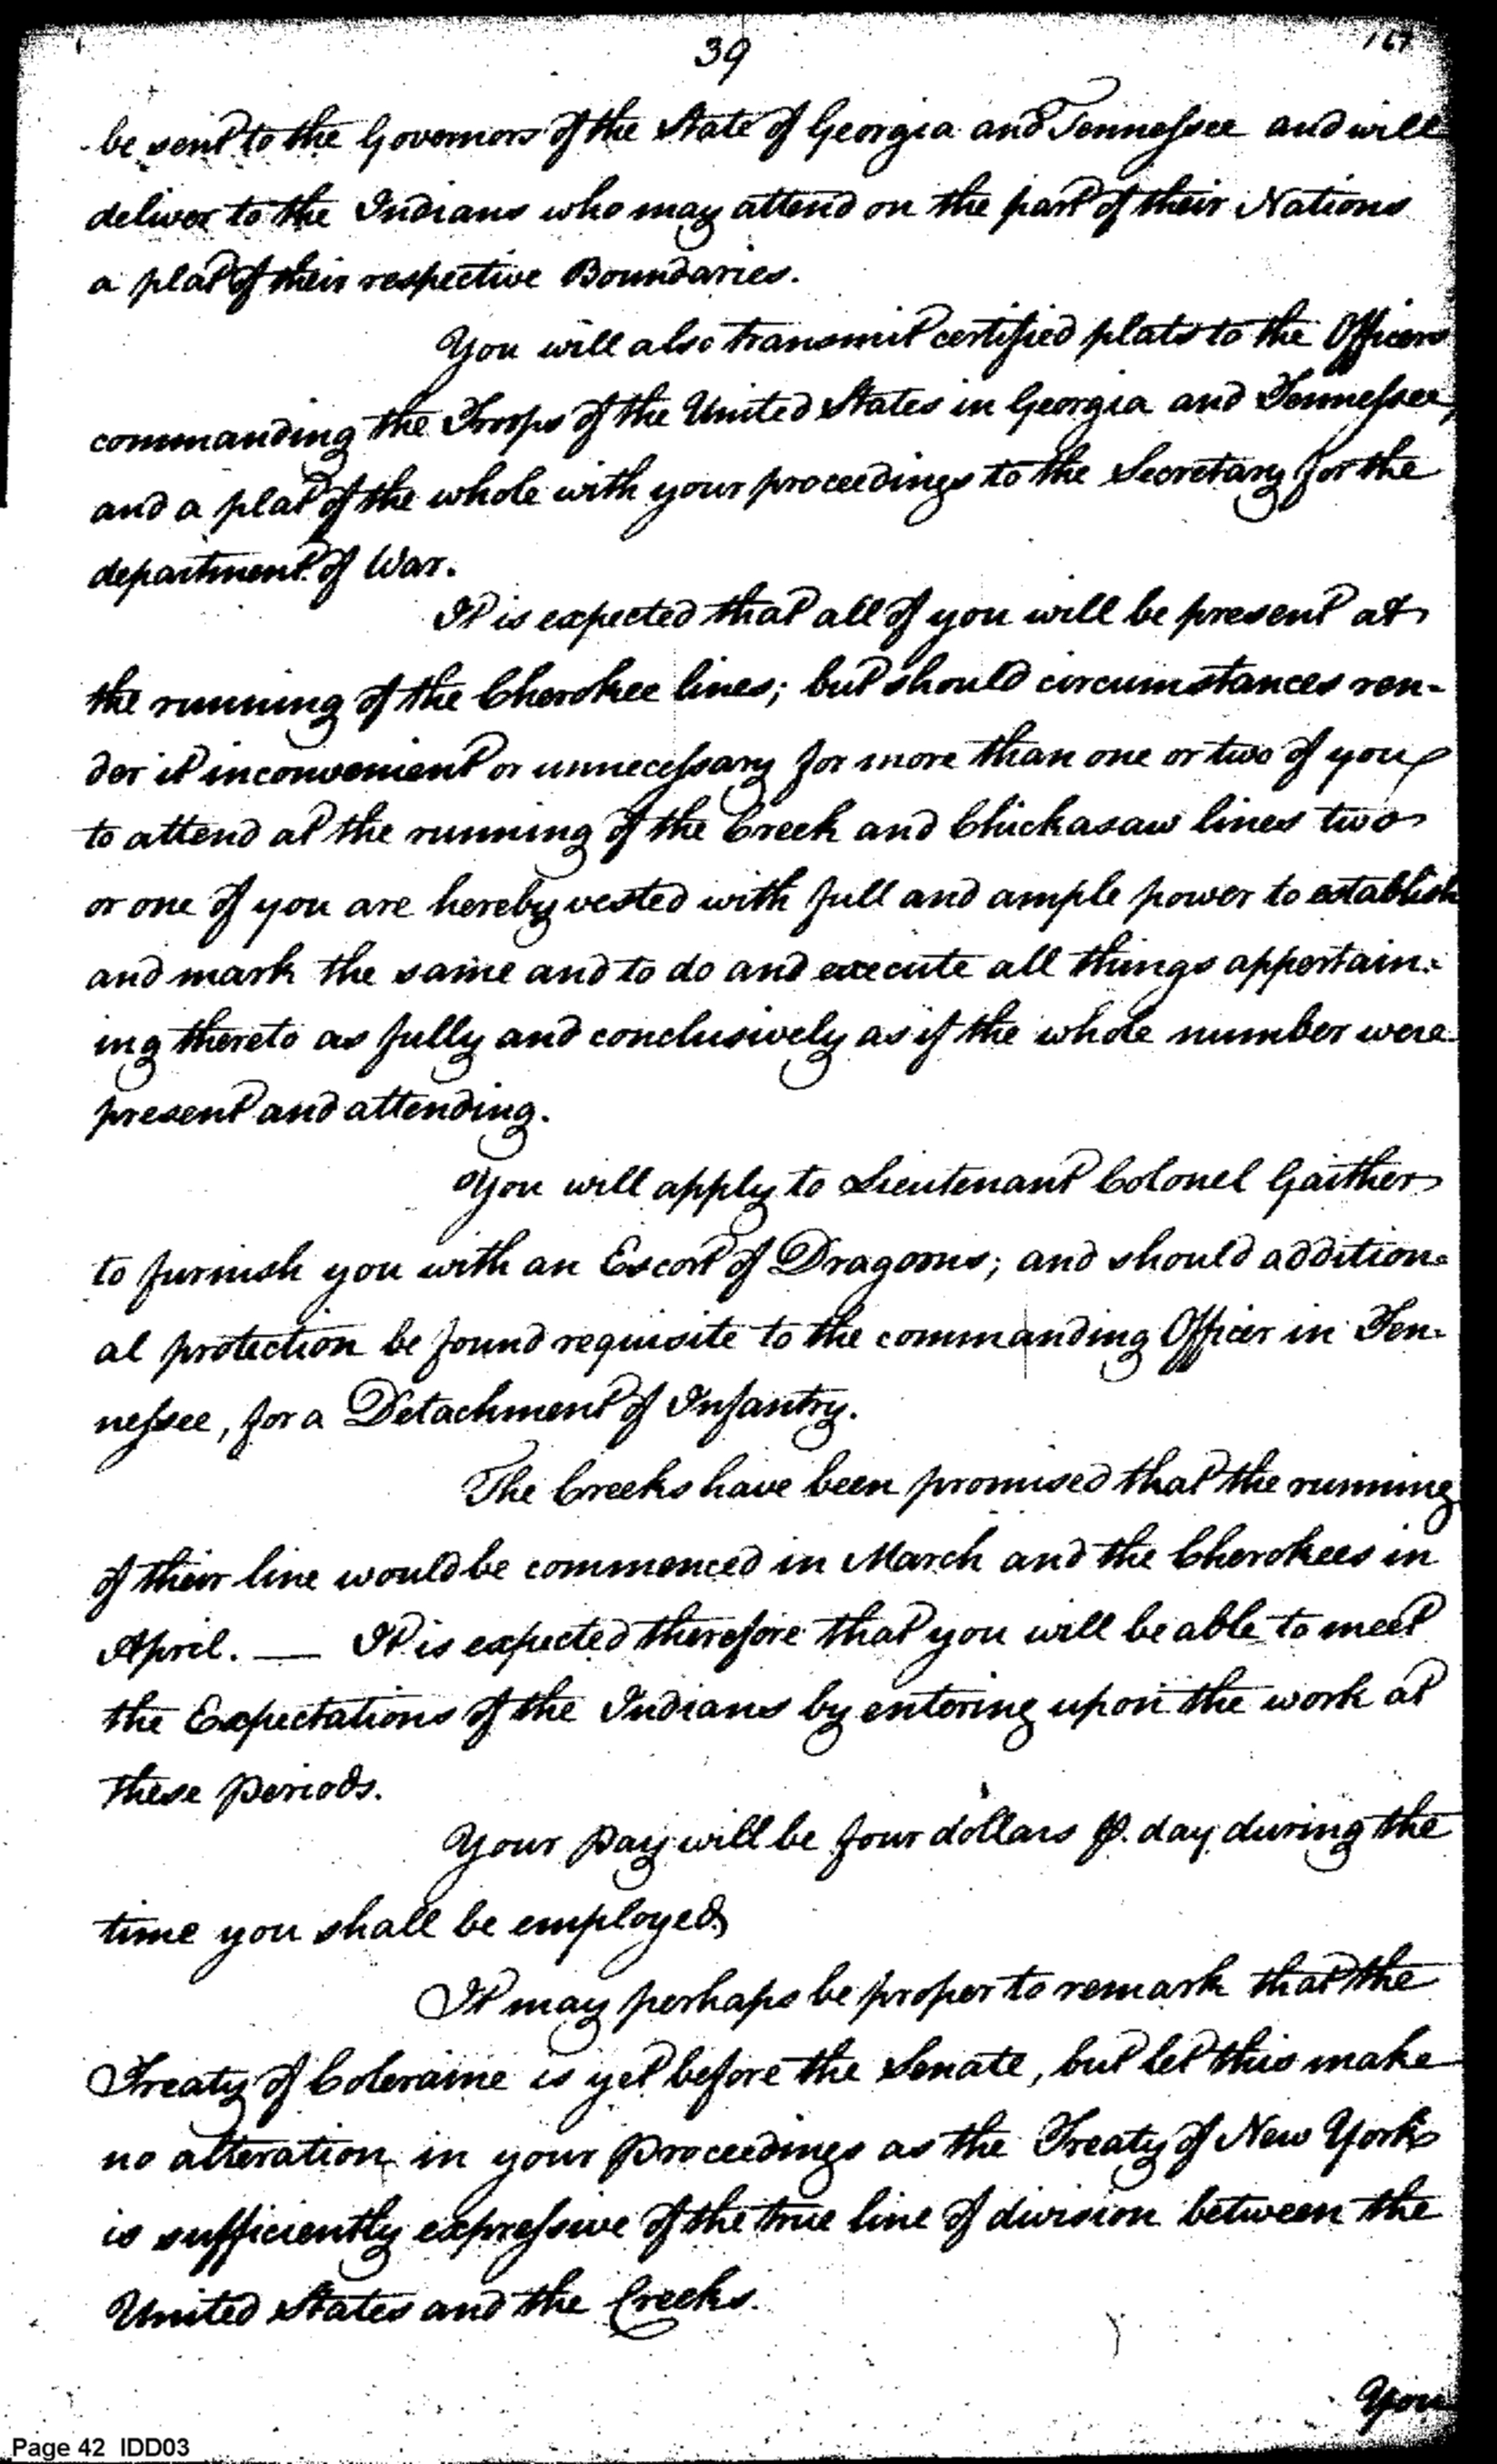 39
167
be sent to the Governors of the State of Georgia and Tennessee and will
deliver to the Indians who may attend on the part of their Nations
a plat of their respective Boundaries.
You will also transmit certified plats to the Officers
commanding the Troops of the United States in Georgia and Tennessee,
and a plat of the whole with your proceedings to the Secretary for the
department of War.
It is expected that all of you will be present at
the running of the Cherokee lines; but should circumstances ren-
der it inconvenient or unnecessary for more than one or two of you
to attend at the running of the Creek and Chickasaw lines two
or one of you are hereby vested with full and ample power to establish
and mark the same and to do and execute all things appertain-
ing thereto as fully and conclusively as if the whole number were
present and attending.
You will apply to Lieutenant Colonel Gaither
to furnish you with an Escort of Dragoons; and should addition=
al protection be found requisite to the commanding Officer in Ten-
nessee, for a Detachment of Infantry.
The Creeks have been promised that the running
of their line would be commenced in March and the Cherokees in
April. — It is expected therefore that you will be able to meet
the Expectations of the Indians by entering upon the work at
these periods.
Your pay will be four dollars ⅌. day during the
time you shall be employed
It may perhaps be proper to remark that the
Treaty of Coleraine is yet before the Senate, but let this make
no alteration in your Proceedings as the Treaty of New York
is sufficiently expressive of the true line of division between the
United States and the Creeks.
You
Page 42 IDD03